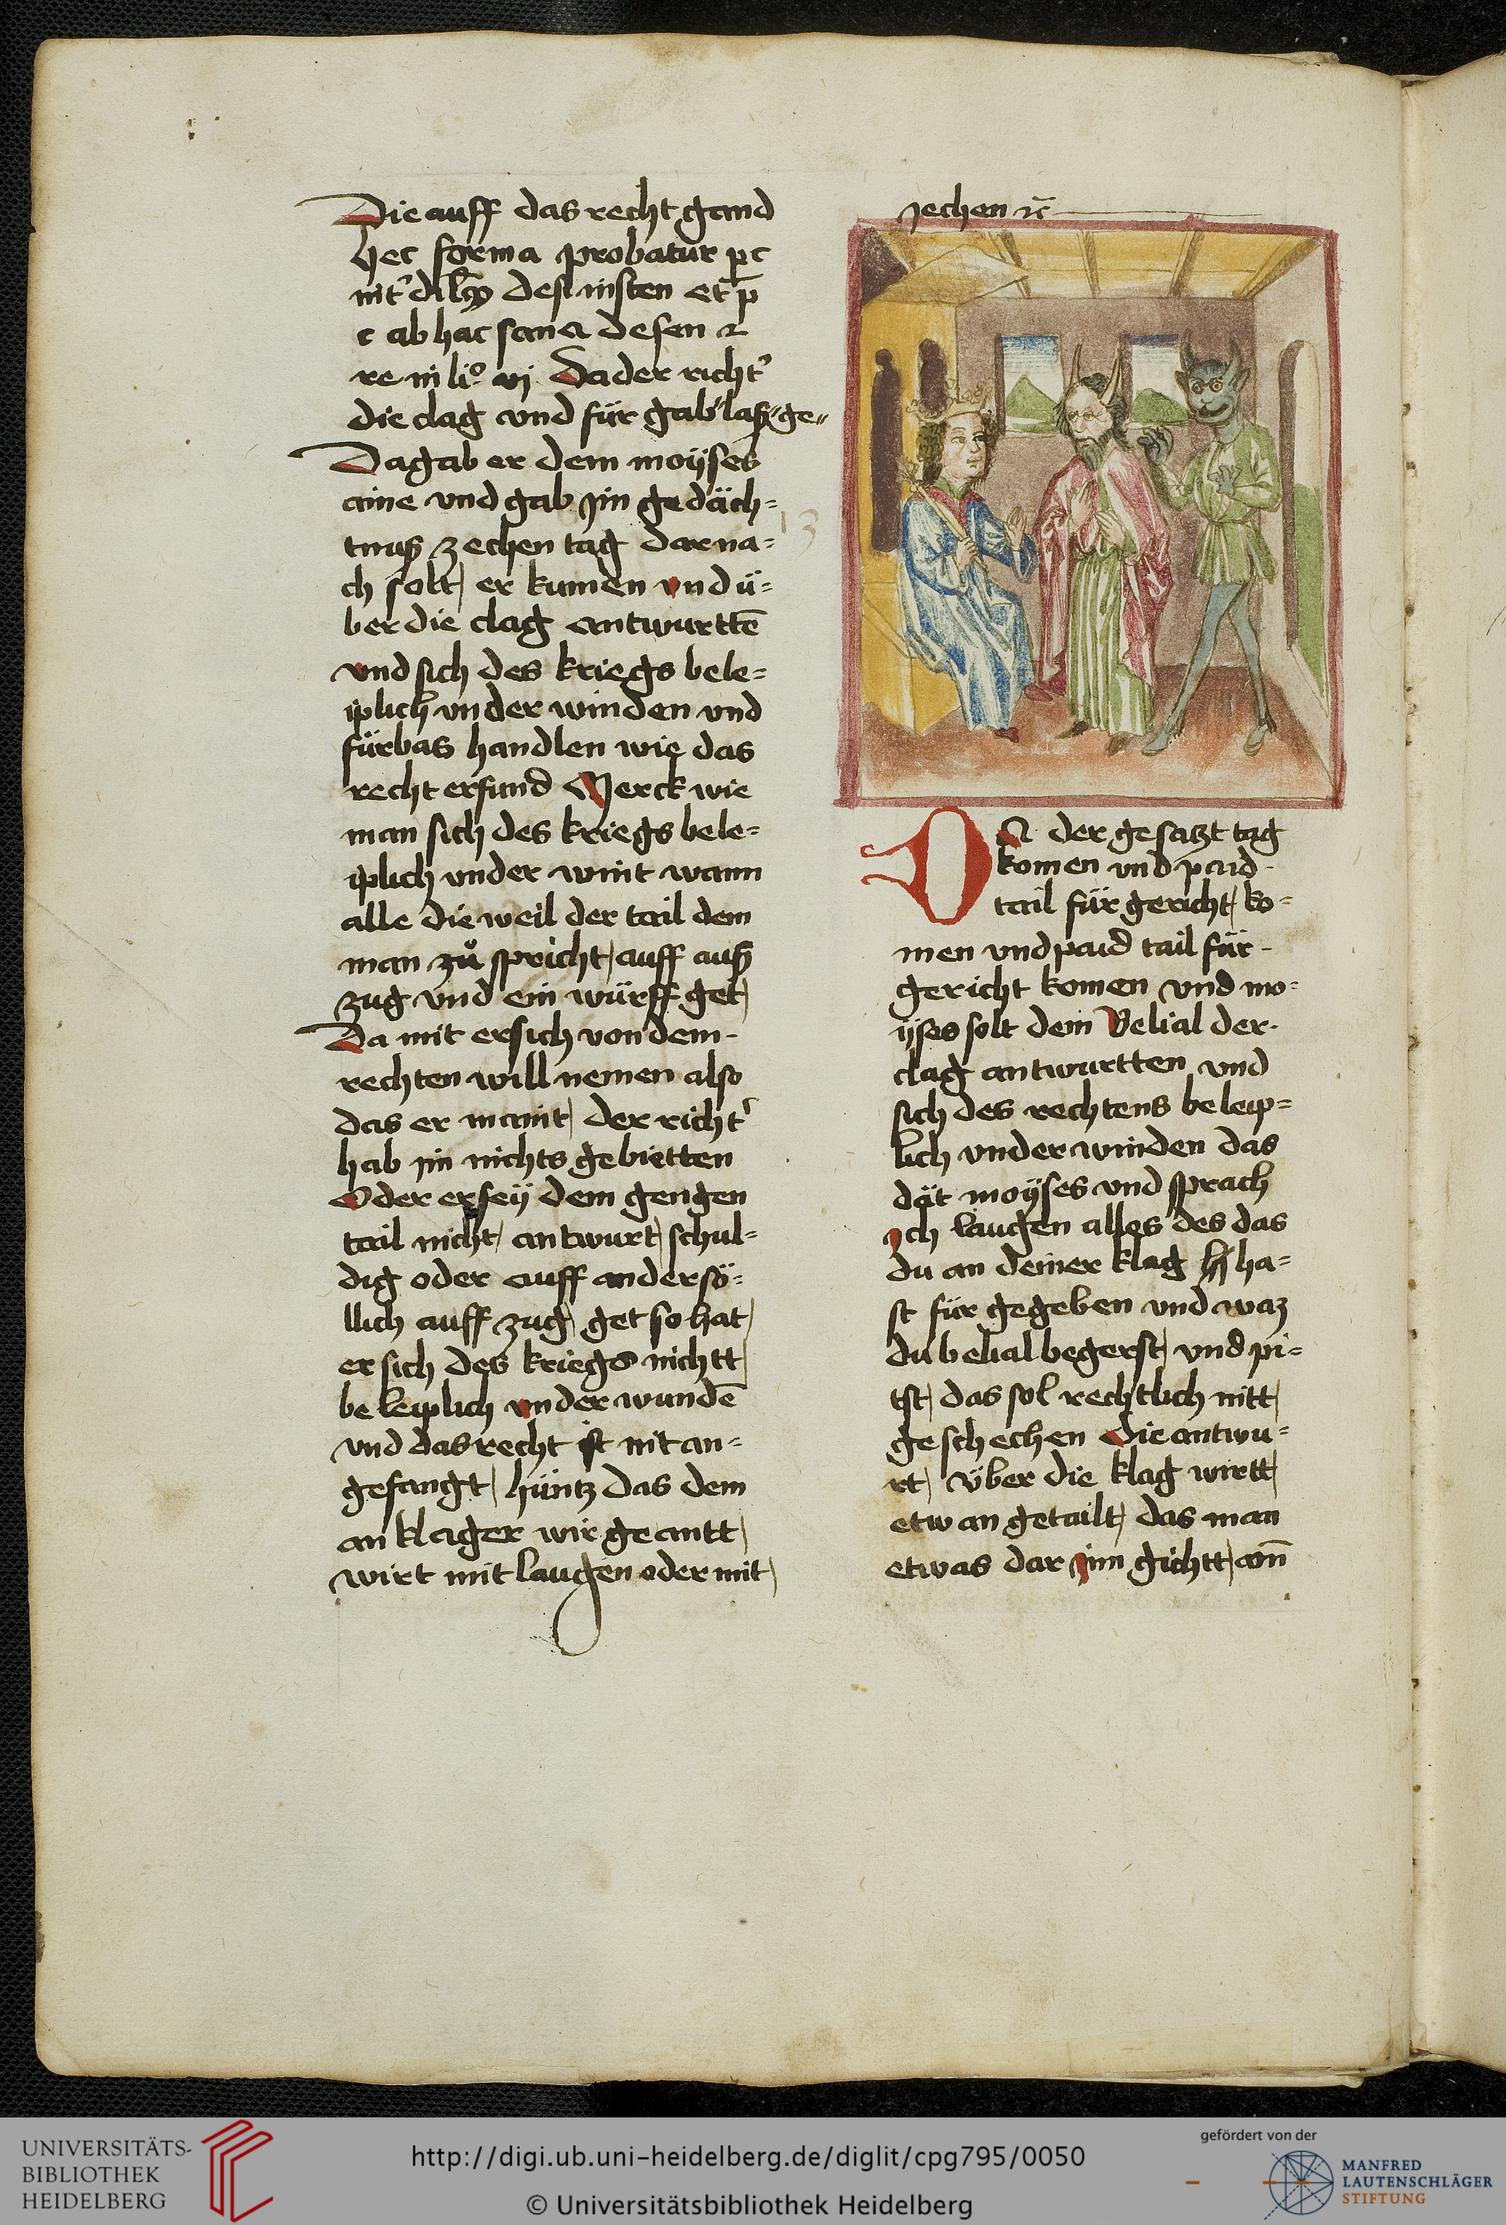 Die auff das recht gand
hec forma probatur
c ab hac sana desen
re in li° vj Da der richt'
die clag vnd für gab las ge
Da gab er dem moÿses
aine vnd gab jm gedäch=
tnuß zechen tag dar na=
ch solt er kumen vnd ü=
ber die clag antwurttē
vnd sich des kriegs bele=
iplich vnder winden vnd
fürbas handlen wie das
recht erfund Merck wie
man sich des kriegs bele=
iplich vnder wint wann
alle die weil der tail dem
man zů spricht auff auß
zug vnd ein würff get
Da mit er sich von dem
rechten will nemen also
das er maint der richt'
hab jm nichts gebietten
Oder er seÿ dem gengen
tail nicht antwurt schul=
dig oder auff ander sö=
llich auff zug get so hat
er sich des kriegs nichtt
be leiplich vnder wundē
vnd das recht ist nit an=
gefangt hüntz das dem
an klager wir geantt
wirt mit laugen oder mit
jechen ⁊c̄
DA der gesatzt tag
komen vnd paid
tail für gericht ko=
men vnd paid tail für
gericht komen vnd mo=
ÿses solt dem Belial der
clag antwurtten vnd
sich des rechtens beleip=
lich vnder winden das
dät moÿses vnd sprach
jch laugen alles des das
du an deiner klag ha=
st für gegeben vnd waz
du belial begerst vnd pi=
tst das sol rechtlich nitt
geschechen Die antwu=
rt über die klag wirtt
etwan getailt das man
etwas dar jnn gichtt
UNIVERSITÄTS-
BIBLIOTHEK
HEIDELBERG
http://digi.ub.uni-heidelberg.de/diglit/cpg795/0050
© Universitätsbibliothek Heidelberg
gefördert von der
MANFRED
LAUTENSCHLÄGER
STIFTUNG